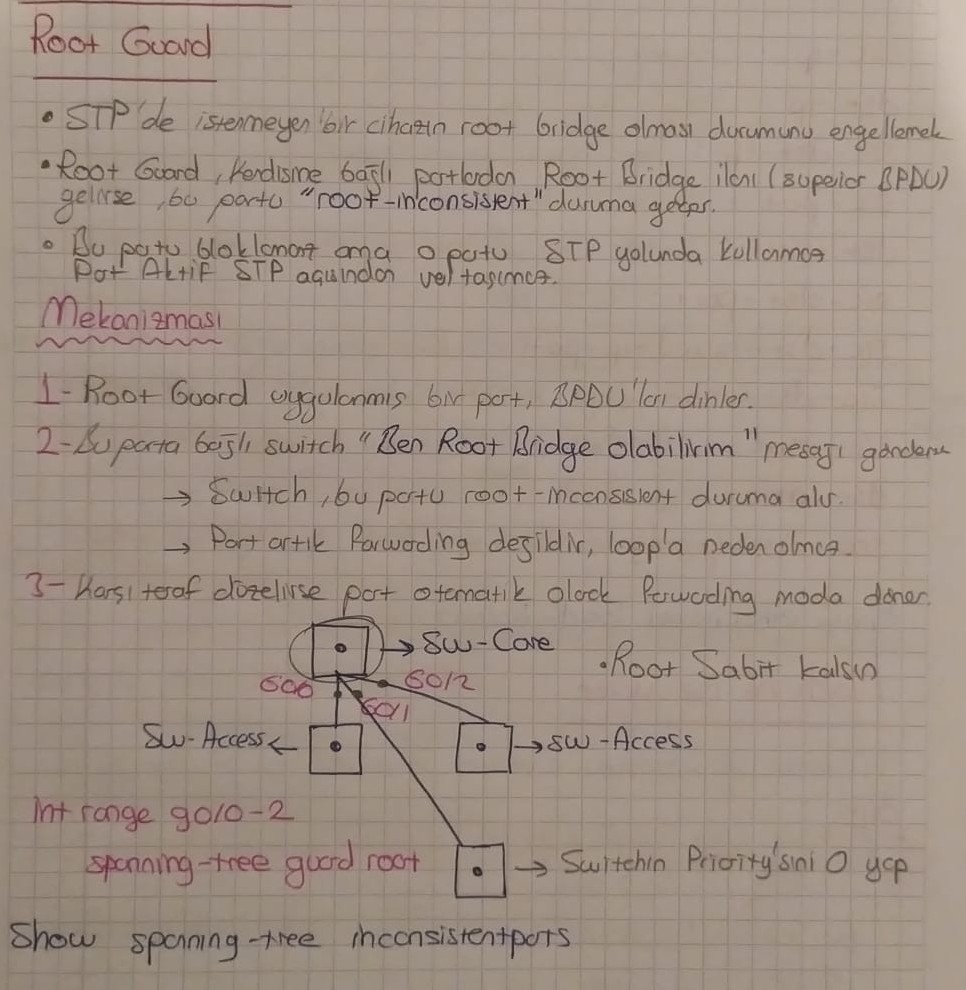 Root Guard
• STP'de istenmeyen bir cihazın root bridge olması durumunu engellemek
• Root Guard, kendisine bağlı portlardan Root Bridge ilanı (superior BPDU)
gelirse, bu portu "root-inconsistent" duruma geçer.
• Bu portu bloklamaz ama o portu STP yolunda kullanmaz
Port Aktif STP ağından veri taşımaz.
Mekanizması
1- Root Guard uygulanmış bir port, BPDU'ları dinler.
2- Bu porta bağlı switch "Ben Root Bridge olabilirim" mesajı gönderir
→ Switch, bu portu root-inconsistent duruma alır.
→ Port artık Forwarding değildir, loop'a neden olmaz.
3- Karşı taraf düzelirse port otomatik olarak Forwarding moda döner.
→ SW-Core
• Root Sabit kalsın
G0/2
G0/1
SW-Access ←
→ SW-Access
Int range g0/0-2
spanning-tree guard root
→ Switchin Priority'sini 0 yap
Show spanning-tree inconsistentports